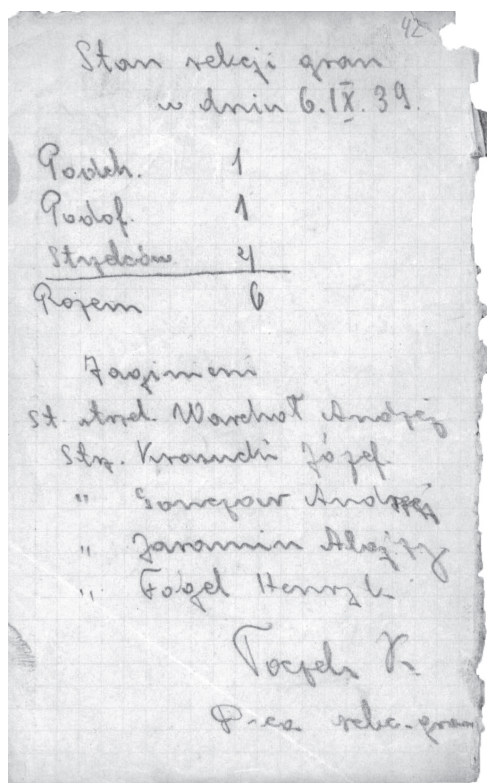 42
Stan sekcji gran
w dniu 6.IX.39.
Podch. 1
Podof. 1
Strzelców 4
Razem 6
Zaginieni
St. strzel. Warchoł Andrzej
Strz. Krasucki Józef
" Andrzej
" Jaromin Alojzy
" Fogel Henryk
K.
D-ca sekc. gran